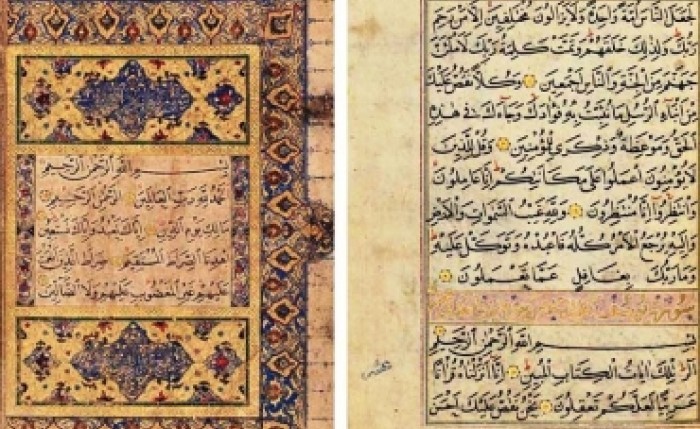 لجعل الناس امة واحدة ولا يزالون مختلفين الا من رحم
ربك ولذلك خلقهم وتمت كلمة ربك لاملئن
جهنم من الجنة والناس اجمعين وكلا نقص عليك
من انباء الرسل ما نثبت به فؤادك وجاءك في هذه
الحق وموعظة وذكرى للمؤمنين وقل للذين
لا يؤمنون اعملوا على مكانتكم انا عاملون
وانتظروا انا منتظرون ولله غيب السموات والارض
واليه يرجع الامر كله فاعبده وتوكل عليه
وما ربك بغافل عما تعملون
بسم الله الرحمن الرحيم
الر تلك ايات الكتاب المبين انا انزلناه قرانا
عربيا لعلكم تعقلون نحن نقص عليك احسن
بسم الله الرحمن الرحيم
الحمد لله رب العالمين الرحمن الرحيم
مالك يوم الدين اياك نعبد واياك نستعين
اهدنا الصراط المستقيم صراط الذين انعمت
عليهم غير المغضوب عليهم ولا الضالين